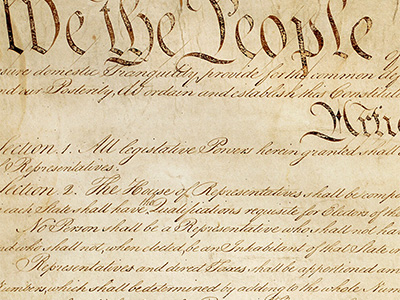 We the People
insure domestic Tranquility, provide for the common def
and our Posterity, do ordain and establish this Constitut
Artic
Section. 1. All legislative Powers herein granted shall b
Representatives.
Section. 2. The House of Representatives shall be compo
each State shall have the Qualifications requisite for Electors of the
No Person shall be a Representative who shall not hav
and who shall not, when elected, be an Inhabitant of that State in
Representatives and direct Taxes shall be apportioned am
Numbers, which shall be determined by adding to the whole Num